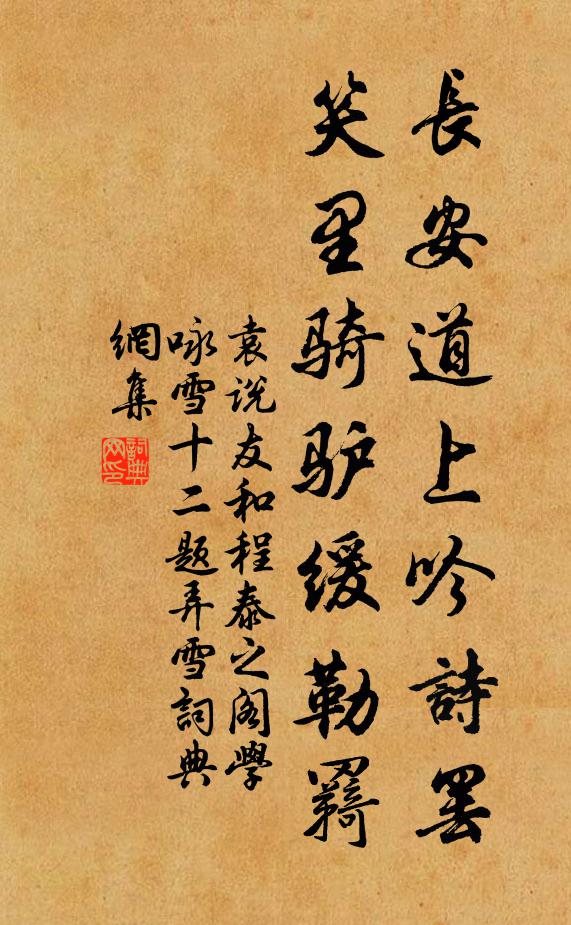 長安道上吟詩罢
笑里骑驴缓勒羇
袁说友和程泰之阁學
咏雪十二题弄雪詞典
網集
詞典网印